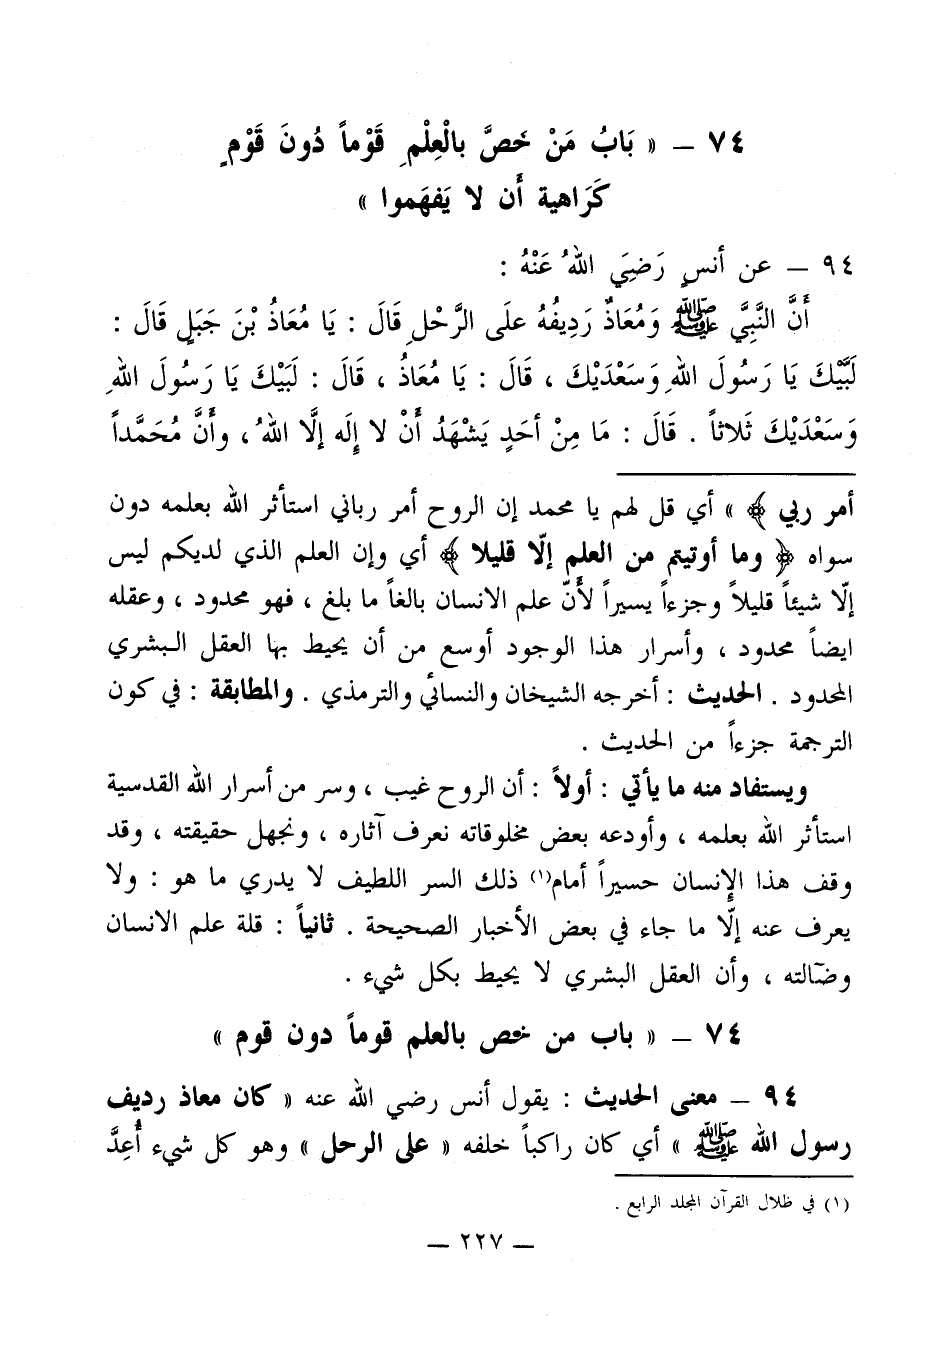 ٧٤ – « بَابُ مَنْ خَصَّ بالْعِلْمِ قَوْماً دُونَ قَوْمٍ
كَرَاهية أَن لا يَفهَموا »
٩٤ – عن أنسٍ رَضِيَ اللهُ عَنْهُ :
أَنَّ النَّبِيَّ ﷺ وَمُعَاذٌ رَدِيفُهُ علَى الرَّحْلِ قَالَ : يَا مُعَاذُ بْنَ جَبَلٍ قَالَ :
لَبَّيْكَ يَا رَسُولَ اللهِ وَسَعْدَيْكَ ، قَالَ : يَا مُعَاذُ ، قَالَ : لَبَيْكَ يَا رَسُولَ اللهِ
وَسَعْدَيْكَ ثَلَاثاً . قَالَ : مَا مِنْ أحَدٍ يَشْهَدُ أَنْ لا إِلَه إلَّا اللهُ ، وأَنَّ مُحَمَّداً
أمر ربي ﴾ » أي قل لهم يا محمد إن الروح أمر رباني استأثر الله بعلمه دون
سواه ﴿ وما أوتيتم من العلم إلّا قليلا ﴾ أي وإن العلم الذي لديكم ليس
إلّا شيئاً قليلاً وجزءاً يسيراً لأنّ علم الانسان بالغاً ما بلغ ، فهو محدود ، وعقله
ايضاً محدود ، وأسرار هذا الوجود أوسع من أن يحيط بها العقل البشري
المحدود . الحديث : أخرجه الشيخان والنسائي والترمذي . والمطابقة : في كون
الترجمة جزءاً من الحديث .
ويستفاد منه ما يأتي : أولاً : أن الروح غيب ، وسر من أسرار الله القدسية
استأثر الله بعلمه ، وأودعه بعض مخلوقاته نعرف آثاره ، ونجهل حقيقته ، وقد
وقف هذا الإنسان حسيراً أمام(١) ذلك السر اللطيف لا يدري ما هو : ولا
يعرف عنه إلّا ما جاء في بعض الأخبار الصحيحة . ثانياً : قلة علم الانسان
وضآلته ، وأن العقل البشري لا يحيط بكل شيء .
٧٤ – « باب من خص بالعلم قوماً دون قوم »
٩٤ – معنى الحديث : يقول أنس رضي الله عنه « كان معاذ رديف
رسول الله ﷺ » أي كان راكباً خلفه « على الرحل » وهو كل شيء أُعِدَّ
(١) في ظلال القرآن المجلد الرابع .
– ٢٢٧ –